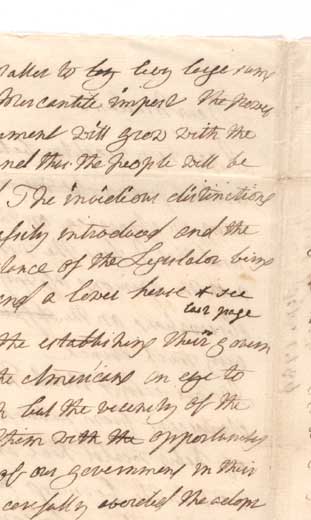 matter to lay levy large sums
Mercantile impost The power
ument will grow with the
and thus the people will be
The invidious distinctions
easily introduced and the
lance of the Legislator being
and a lower house * see
last page
the establishing their govern
the Americans an eye to
but the vicenity of the
them with the opportunity
of our government in their
carefully avoided the adopt